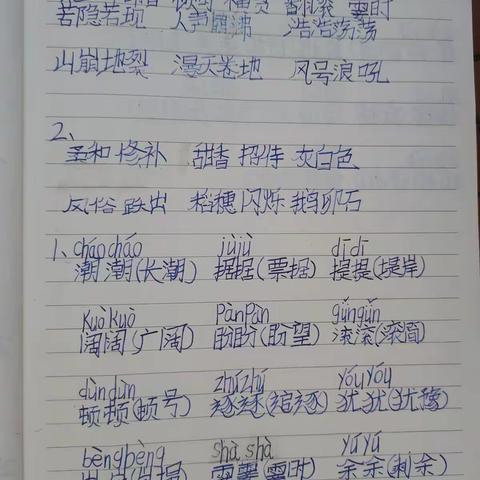 若隐若现 人声鼎沸 浩浩荡荡
山崩地裂 漫天卷地 风号浪吼
2、
柔和 修补 甜香 招待 灰白色
风俗 跌出 稻穗 闪烁 鹅卵石
1、cháo cháo jùjù dīdī
潮潮(长潮) 据据(票据) 提提(提岸)
kuò kuò pàn pàn gǔngǔn
阔阔(广阔) 盼盼(盼望) 滚滚(滚
dùn dùn zhú zhú yóu yóu
顿顿(顿号) 逐逐(追逐) 犹犹(犹豫)
bèng bèng shà shà yú yú
霎霎(霎时) 余余(剩余)